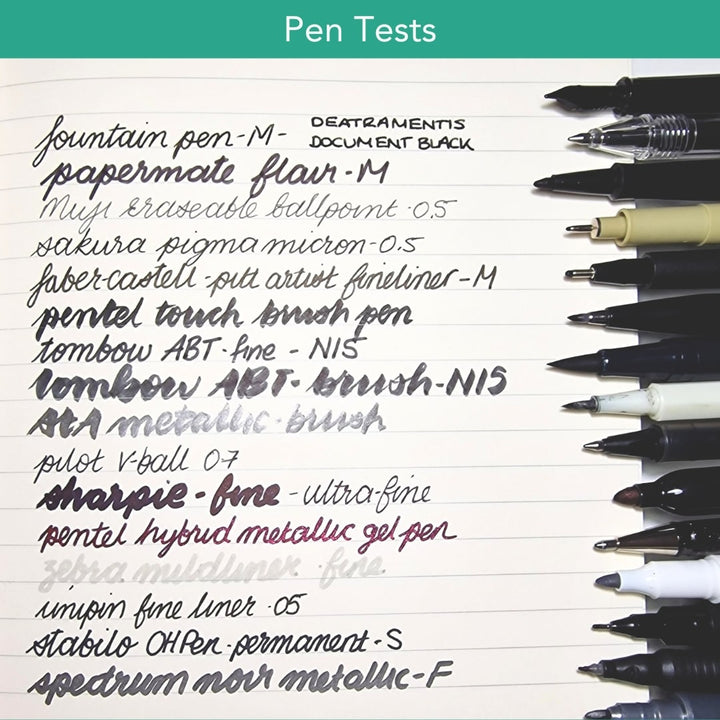 Pen Tests
fountain pen-M- DEATRAMENTIS
DOCUMENT BLACK
papermate flair-M
Muji eraseable ballpoint ·0.5
sakura pigma micron-0.5
faber-castell-pitt artist fineliner-M
pentel touch brush pen
tombow ABT-fine - N15
tombow ABT-brush-N15
AtA metallic-brush
pilot V-ball 07
sharpie-fine-ultra-fine
pentel hybrid metallic gel pen
zebra mildliner ·fine
unipin fine liner ·05
stabilo OHPen-permanent-S
spectrum noir metallic-F